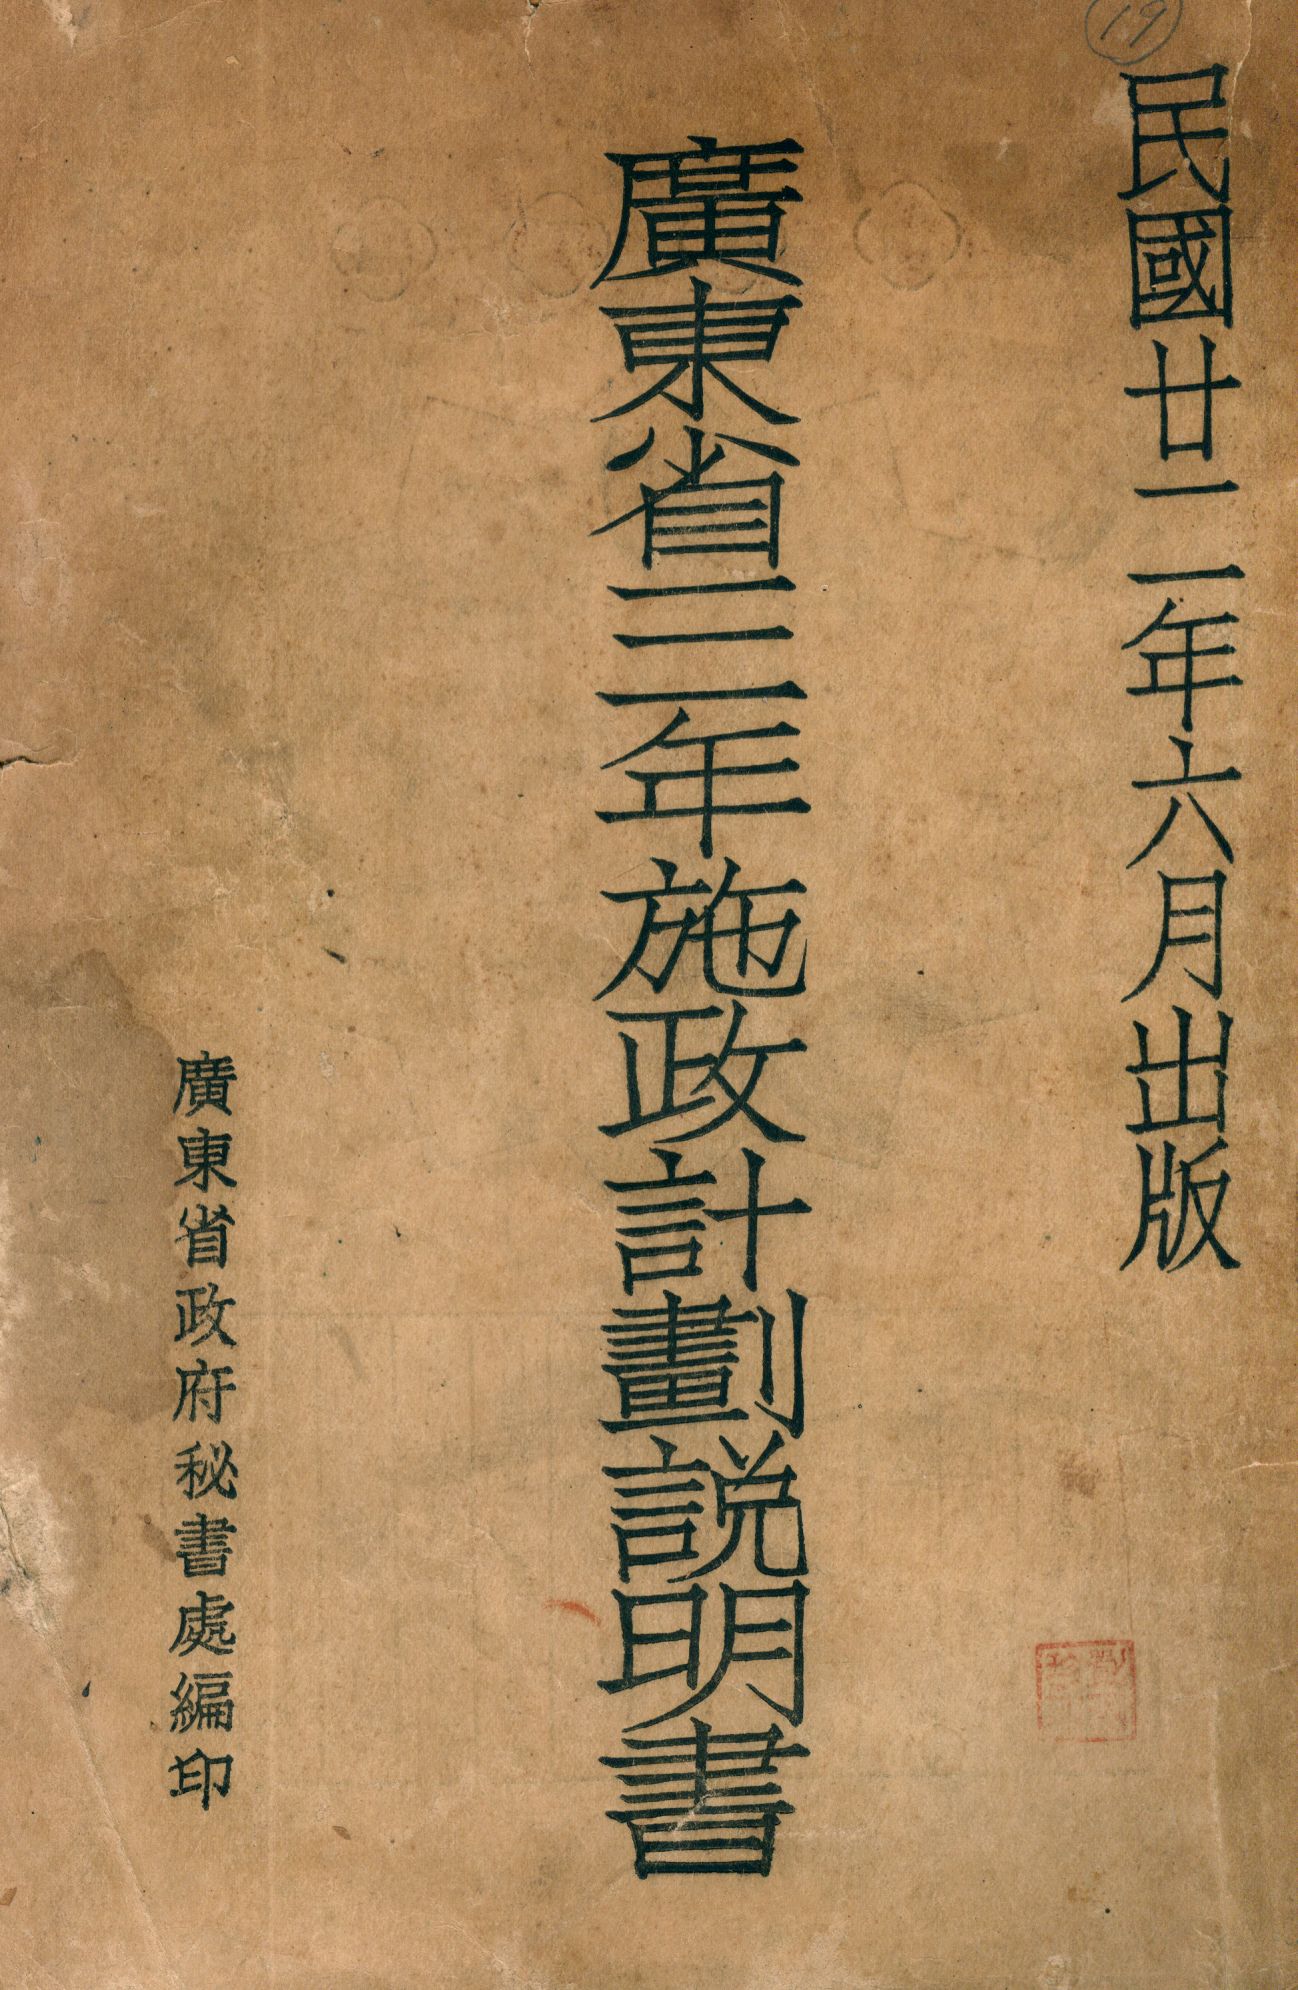 19
民國廿二年六月出版
廣東省三年施政計劃説明書
廣東省政府秘書處編印